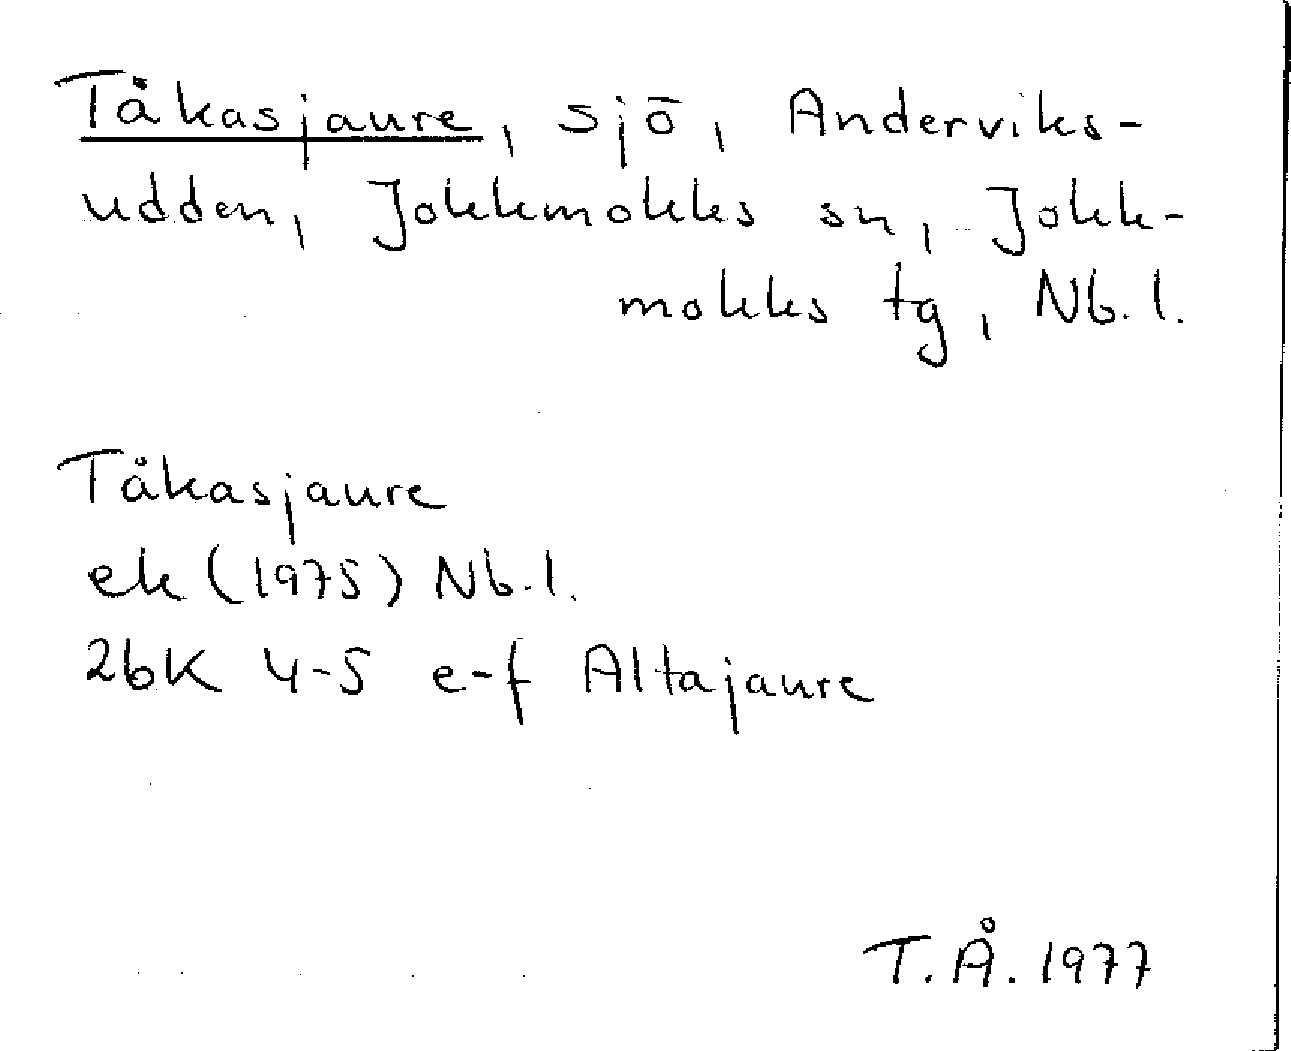 Tåkasjaure, sjö, Anderviks-
udden, Jokkmokks sn, Jokk-
mokks tg, Nb. l.
Tåkasjaure
ek (1975) Nb. l.
26K 4-5 e-f Altajaure
T. Å. 1977